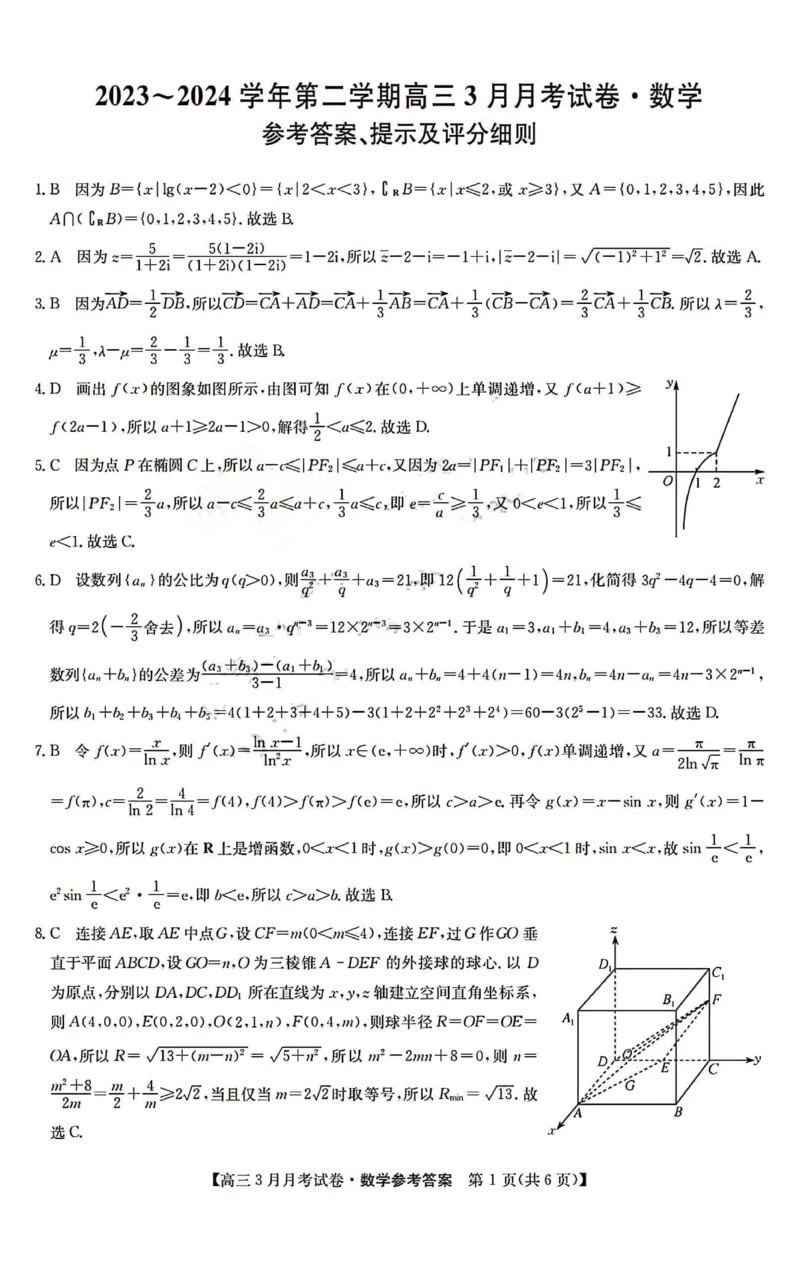 2023～2024 学年第二学期高三 3 月月考试卷·数学
参考答案、提示及评分细则
1. B 因为 B={x|lg(x−2)<0}={x|2<x<3}, ∁RB={x|x⩽2,或 x⩾3},又 A={0,1,2,3,4,5},因此
A∩(∁RB)={0,1,2,3,4,5}. 故选 B.
2. A 因为 z=5/(1+2i)=5(1−2i)/((1+2i)(1−2i))=1−2i,所以 z̄−2−i=−1+i,|z̄−2−i|=√((−1)²+1²)=√2. 故选 A.
3. B 因为AD→=1/2 DB→,所以CD→=CA→+AD→=CA→+1/3 AB→=CA→+1/3(CB→−CA→)=2/3 CA→+1/3 CB→. 所以 λ=2/3,
μ=1/3,λ−μ=2/3−1/3=1/3. 故选 B.
4. D 画出 f(x)的图象如图所示,由图可知 f(x)在(0,+∞)上单调递增,又 f(a+1)⩾
f(2a−1),所以 a+1⩾2a−1>0,解得1/2<a⩽2. 故选 D.
y
1
O 1 2 x
5. C 因为点 P 在椭圆 C 上,所以 a−c⩽|PF₂|⩽a+c,又因为 2a=|PF₁|+|PF₂|=3|PF₂|,
所以|PF₂|=2/3 a,所以 a−c⩽2/3 a⩽a+c,1/3 a⩽c,即 e=c/a⩾1/3,又 0<e<1,所以1/3⩽
e<1. 故选 C.
6. D 设数列{aₙ}的公比为 q(q>0),则a₃/q²+a₃/q+a₃=21,即 12(1/q²+1/q+1)=21,化简得 3q²−4q−4=0,解
得 q=2(−2/3舍去),所以 aₙ=a₃·qⁿ⁻³=12×2ⁿ⁻³=3×2ⁿ⁻¹. 于是 a₁=3,a₁+b₁=4,a₃+b₃=12,所以等差
数列{aₙ+bₙ}的公差为((a₃+b₃)−(a₁+b₁))/(3−1)=4,所以 aₙ+bₙ=4+4(n−1)=4n,bₙ=4n−aₙ=4n−3×2ⁿ⁻¹,
所以 b₁+b₂+b₃+b₄+b₅=4(1+2+3+4+5)−3(1+2+2²+2³+2⁴)=60−3(2⁵−1)=−33. 故选 D.
7. B 令 f(x)=x/ln x,则 f′(x)=(ln x−1)/ln²x,所以 x∈(e,+∞)时,f′(x)>0,f(x)单调递增,又 a=π/(2ln √π)=π/ln π
=f(π),c=2/ln 2=4/ln 4=f(4),f(4)>f(π)>f(e)=e,所以 c>a>e. 再令 g(x)=x−sin x,则 g′(x)=1−
cos x⩾0,所以 g(x)在 R 上是增函数,0<x<1 时,g(x)>g(0)=0,即 0<x<1 时,sin x<x,故 sin 1/e<1/e,
e²sin 1/e<e²·1/e=e,即 b<e,所以 c>a>b. 故选 B.
8. C 连接 AE,取 AE 中点G,设 CF=m(0<m⩽4),连接 EF,过 G 作GO 垂
直于平面 ABCD,设 GO=n,O 为三棱锥 A－DEF 的外接球的球心. 以 D
为原点,分别以 DA,DC,DD₁ 所在直线为 x,y,z 轴建立空间直角坐标系,
则 A(4,0,0),E(0,2,0),O(2,1,n),F(0,4,m),则球半径 R=OF=OE=
OA,所以 R=√(13+(m−n)²)=√(5+n²),所以 m²−2mn+8=0,则 n=
(m²+8)/2m=m/2+4/m⩾2√2,当且仅当 m=2√2时取等号,所以 Rmin=√13. 故
选 C.
z
D₁
C₁
B₁
F
A₁
D
O
E
C
y
G
A
B
x
【高三 3 月月考试卷·数学参考答案 第 1 页(共 6 页)】